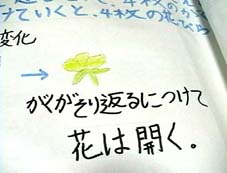 ていくと、4枚の花びら
変化
→
がくがそり返るにつけて
花は開く。